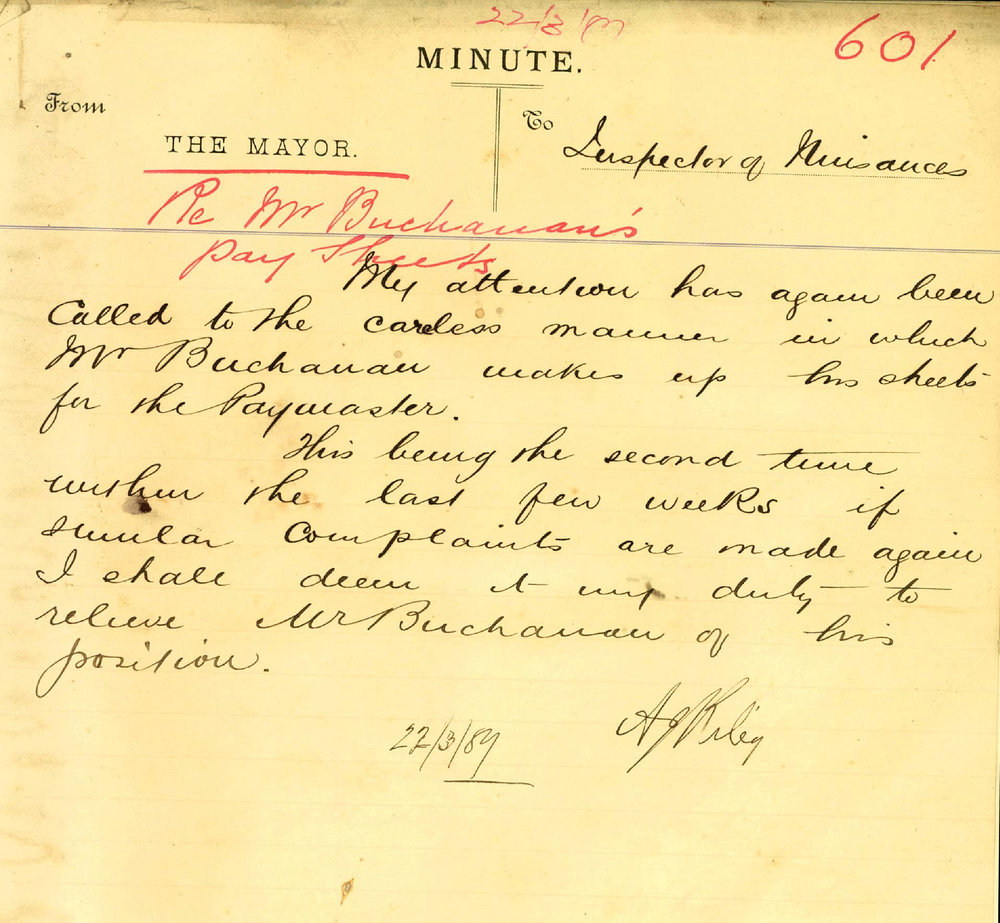 22/3/87
601
MINUTE.
From
To
THE MAYOR.
Inspector of Nuisances
Re Mr Buchanan's
pay Sheets
My attention has again been
called to the careless manner in which
Mr Buchanan makes up his sheets
for the Paymaster.
This being the second time
within the last few weeks if
similar complaints are made again
I shall deem it my duty to
relieve Mr Buchanan of his
position.
22/3/87 AJ Riley